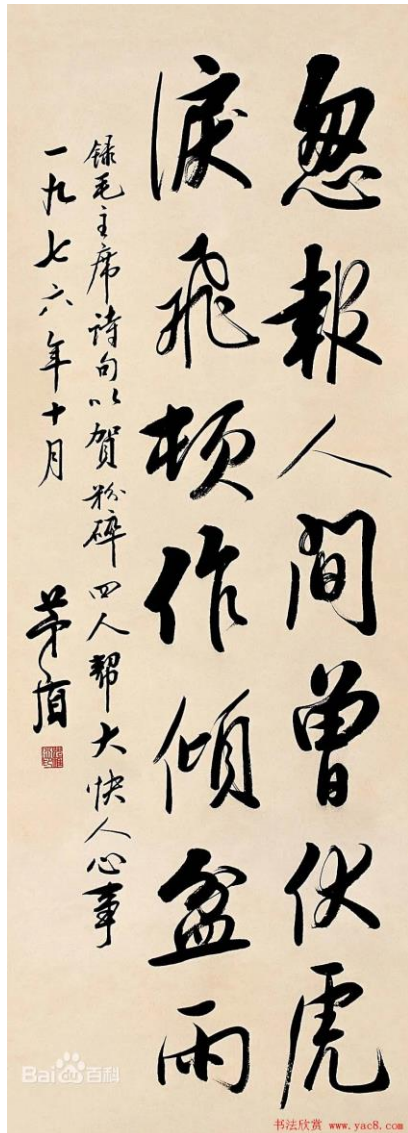 忽報人間曾伏虎
淚飛頓作傾盆雨
録毛主席诗句以賀粉碎四人幫大快人心事
一九七六年十月
茅盾
Bai百科
书法欣赏 www.yac8.com